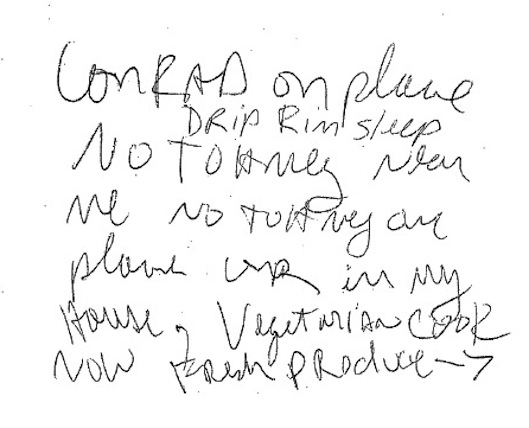 CONRAD on plane
DRIP Rim sleep
NO TOHmey near
me no TOHmey on
plane or in my
House, Vegetarian COOK
NOW Fresh PRODUCE →